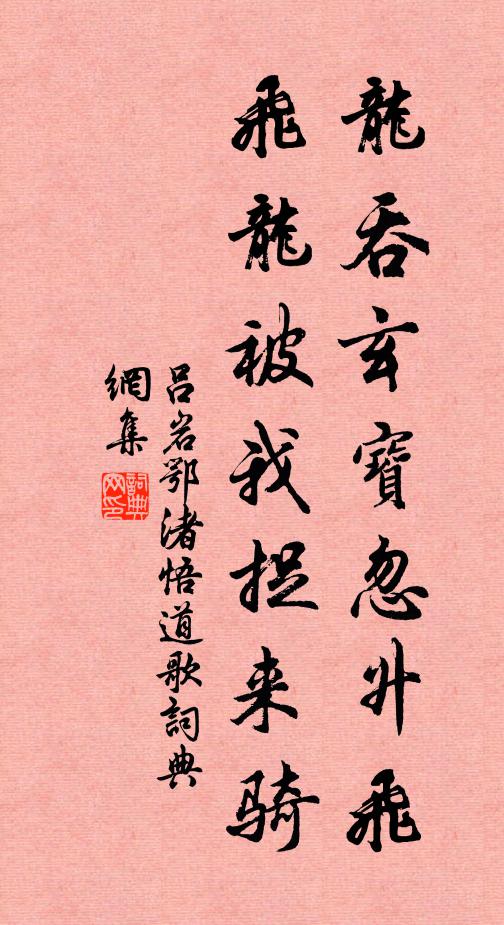 龍吞玄寶忽升飛
飛龍被我捉来騎
吕岩鄂渚悟道歌詞典
網集
詞典
网印